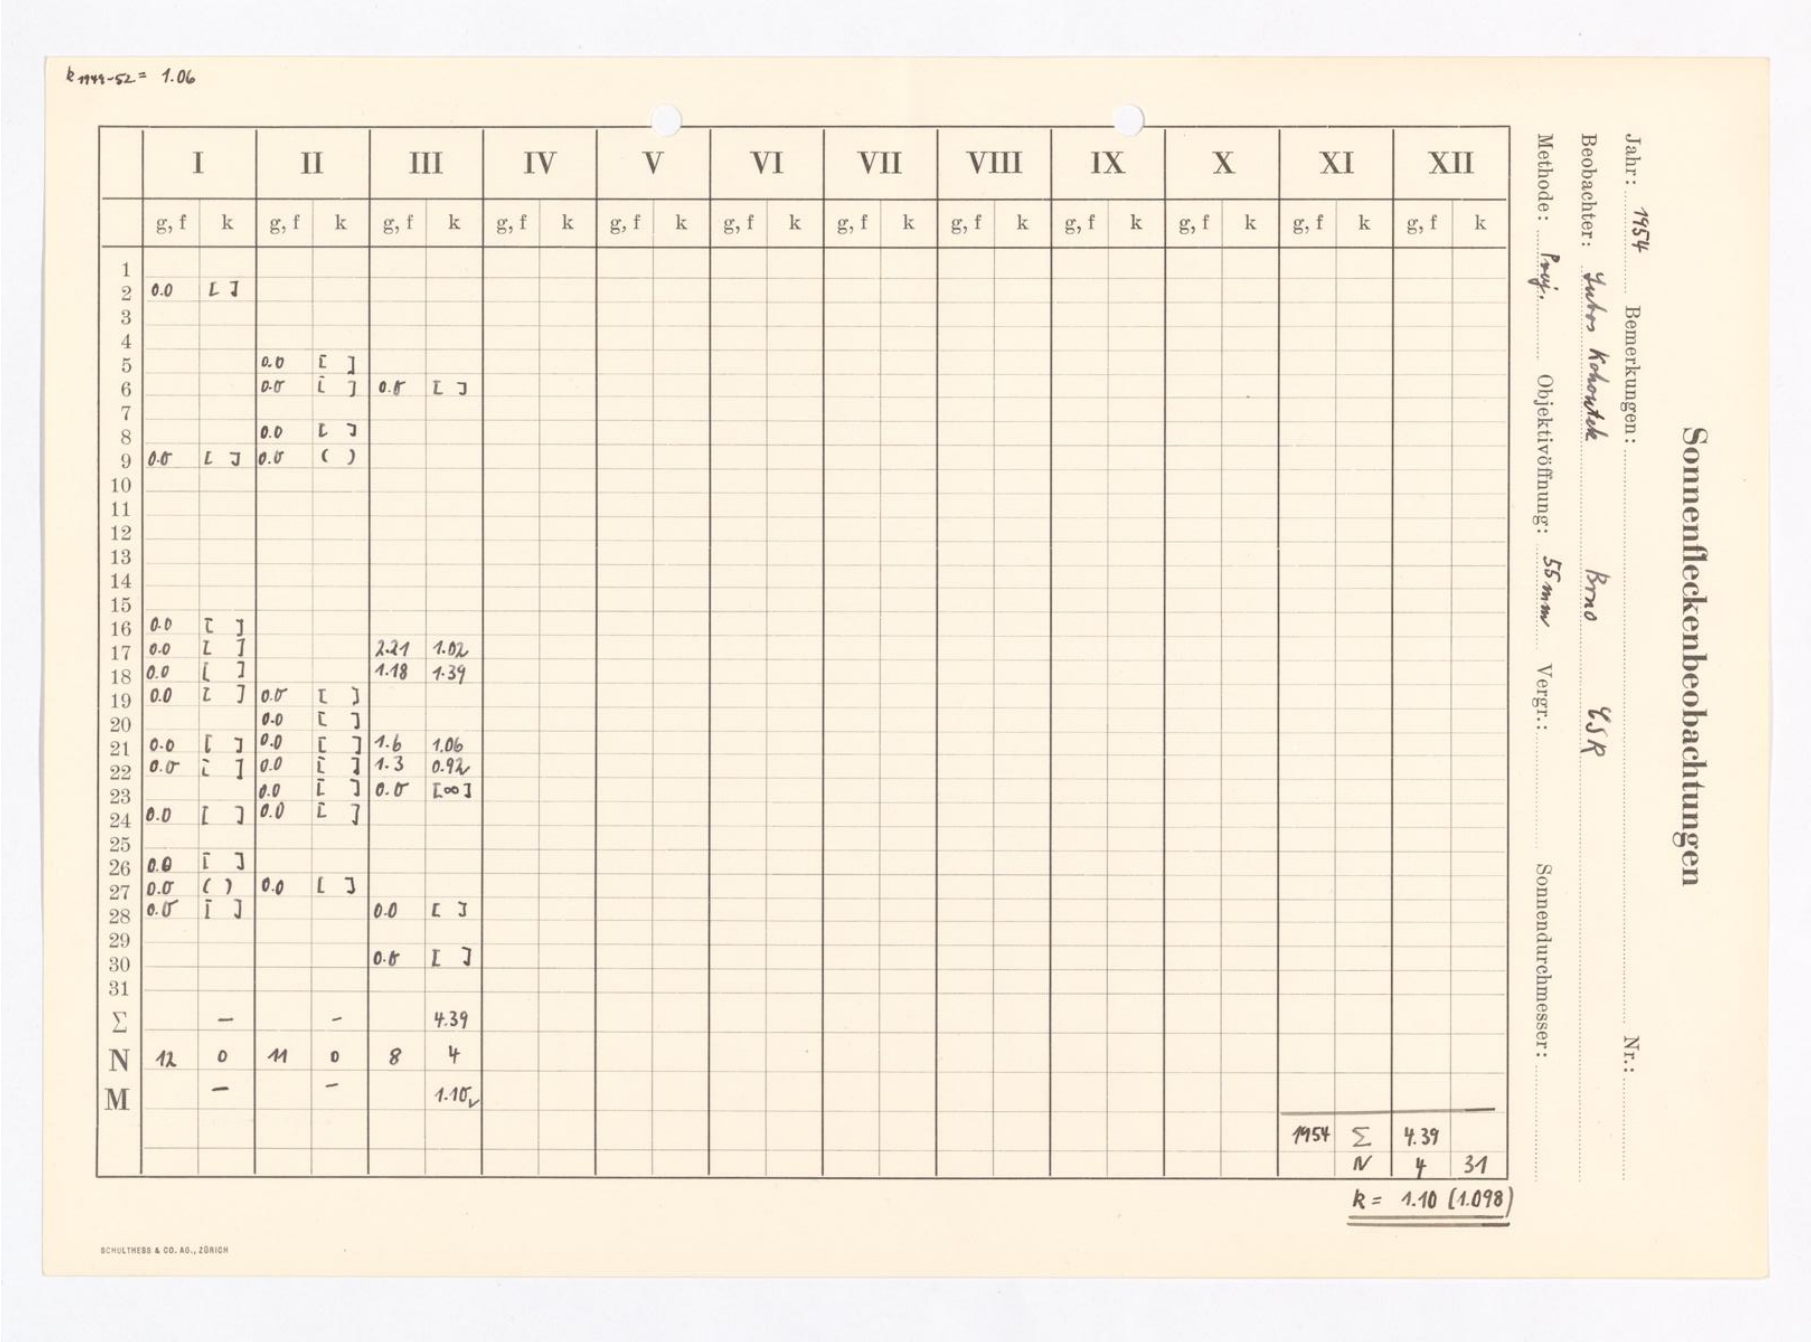 k 1949-52 = 1.06
Sonnenfleckenbeobachtungen
Jahr: 1954 Bemerkungen: Nr.:
Beobachter: Lubos Kohoutek Brno ČSR
Methode: Proj. Objektivöffnung: 55 mm Vergr.: Sonnendurchmesser:
I II III IV V VI VII VIII IX X XI XII
g, f k g, f k g, f k g, f k g, f k g, f k g, f k g, f k g, f k g, f k g, f k g, f k
1
2 0.0 [ ]
3
4
5 0.0 [ ]
6 0.0 [ ] 0.0 [ ]
7
8 0.0 [ ]
9 0.0 [ ] 0.0 ( )
10
11
12
13
14
15
16 0.0 [ ]
17 0.0 [ ] 2.21 1.02
18 0.0 [ ] 1.18 1.39
19 0.0 [ ] 0.0 [ ]
20 0.0 [ ]
21 0.0 [ ] 0.0 [ ] 1.6 1.06
22 0.0 [ ] 0.0 [ ] 1.3 0.92
23 0.0 [ ] 0.0 [∞]
24 0.0 [ ] 0.0 [ ]
25
26 0.0 [ ]
27 0.0 ( ) 0.0 [ ]
28 0.0 [ ] 0.0 [ ]
29
30 0.0 [ ]
31
Σ – – 4.39
N 12 0 11 0 8 4
M – – 1.10
1954 Σ 4.39
N 4 31
k = 1.10 (1.098)
SCHULTHESS & CO. AG., ZÜRICH